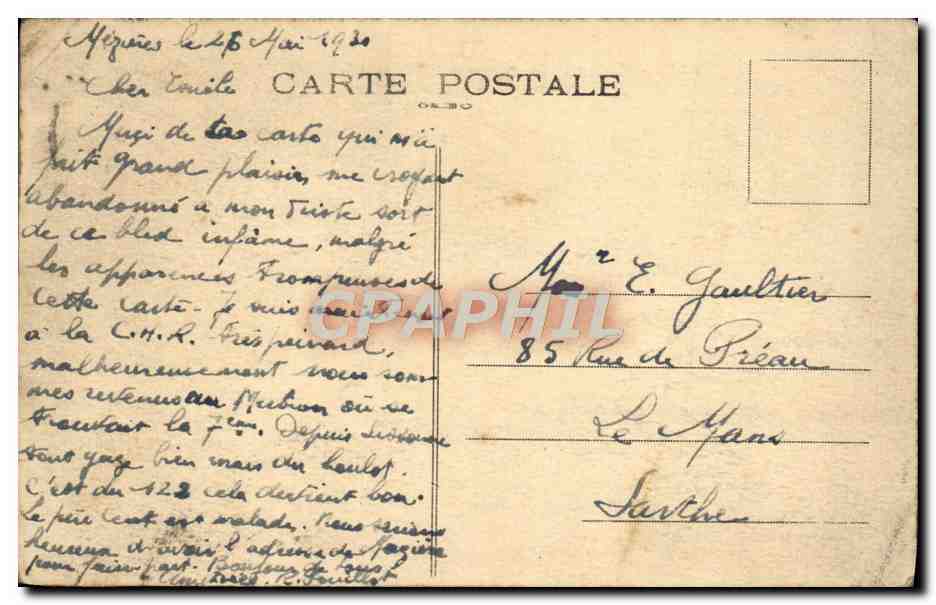 Mézières le 26 Mai 1930
CARTE POSTALE
Cher Emile
Merci de ta carte qui m'a
fait grand plaisir, me croyant
abandonné a mon triste sort
de ce bled infâme, malgré
les apparences trompeuses de
cette carte. Je suis
à la C.H.R.
malheureusement nous som-
mes retenus au où se
trouvait la 7eme. Depuis
tout gaze bien mais du boulot.
C'est du 122 cela devient bon.
Le père est malade. Nous serions
heureux d'avoir l'adresse de Mazière
pour faire part. Bonjour de tous
Amitiés. R.
Mr E. Gaultier
85 Rue de Préau
Le Mans
Sarthe
CPAPHIL